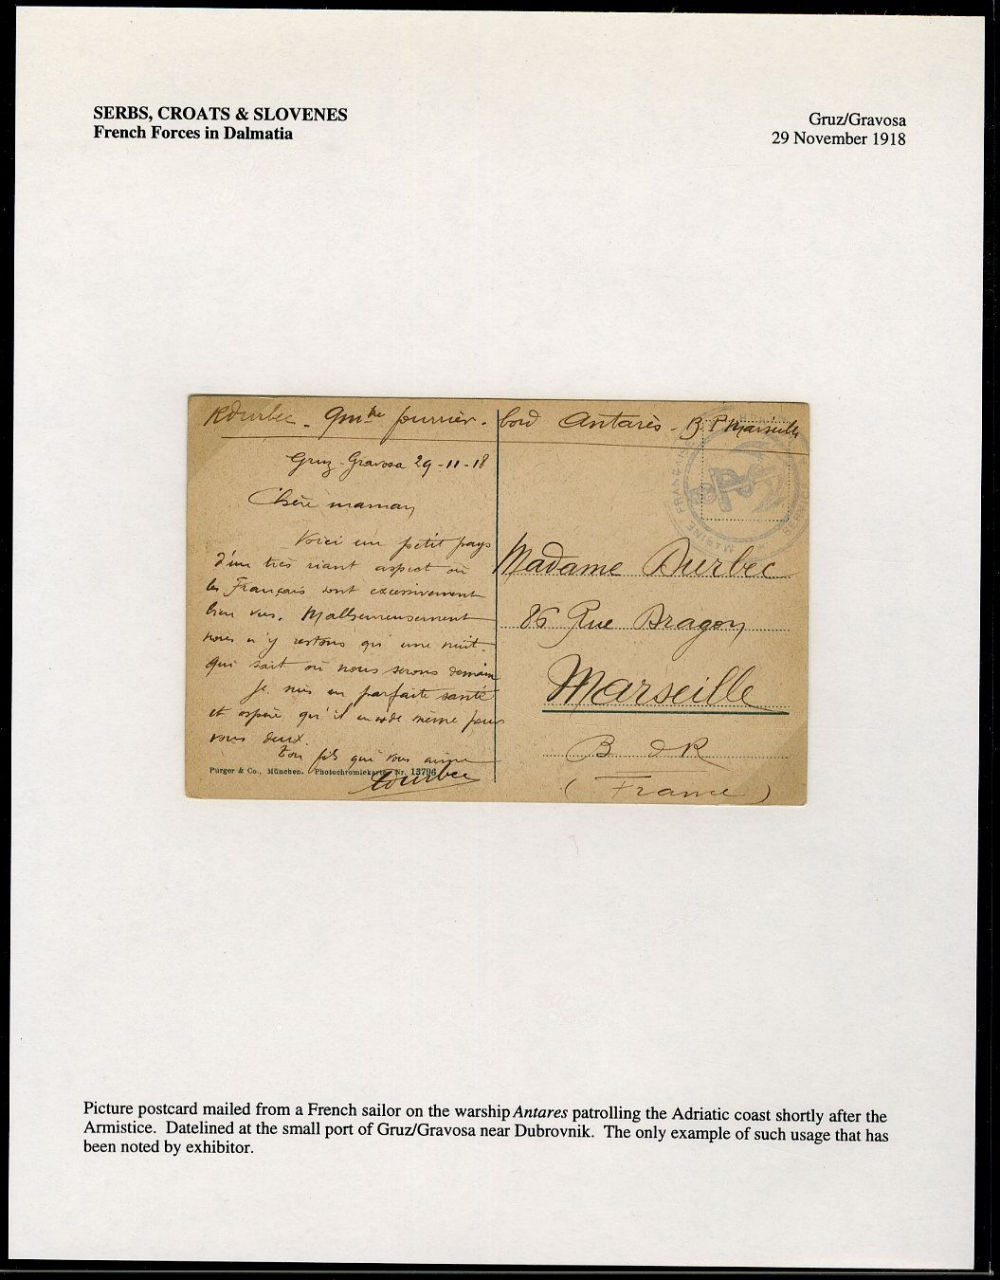 SERBS, CROATS & SLOVENES
French Forces in Dalmatia
Gruz/Gravosa
29 November 1918
Durbec - Qm fourrier - bord Antarès - B. P. Marseille
Gruz-Gravosa 29-11-18
Chère maman
Voici un petit pays
d'un très riant aspect où
les Français sont excessivement
bien vus. Malheureusement
nous n'y restons qu'une nuit.
qui sait où nous serons demain
Je suis en parfaite santé
et espère qu'il en est de même pour
vous deux.
Ton fils qui vous aime
Durbec
Purger & Co., München. Photochromiekarte Nr. 13796
MARINE FRANÇAISE
Madame Durbec
86 Rue Dragon
Marseille
B d R
(France)
Picture postcard mailed from a French sailor on the warship Antares patrolling the Adriatic coast shortly after the
Armistice. Datelined at the small port of Gruz/Gravosa near Dubrovnik. The only example of such usage that has
been noted by exhibitor.